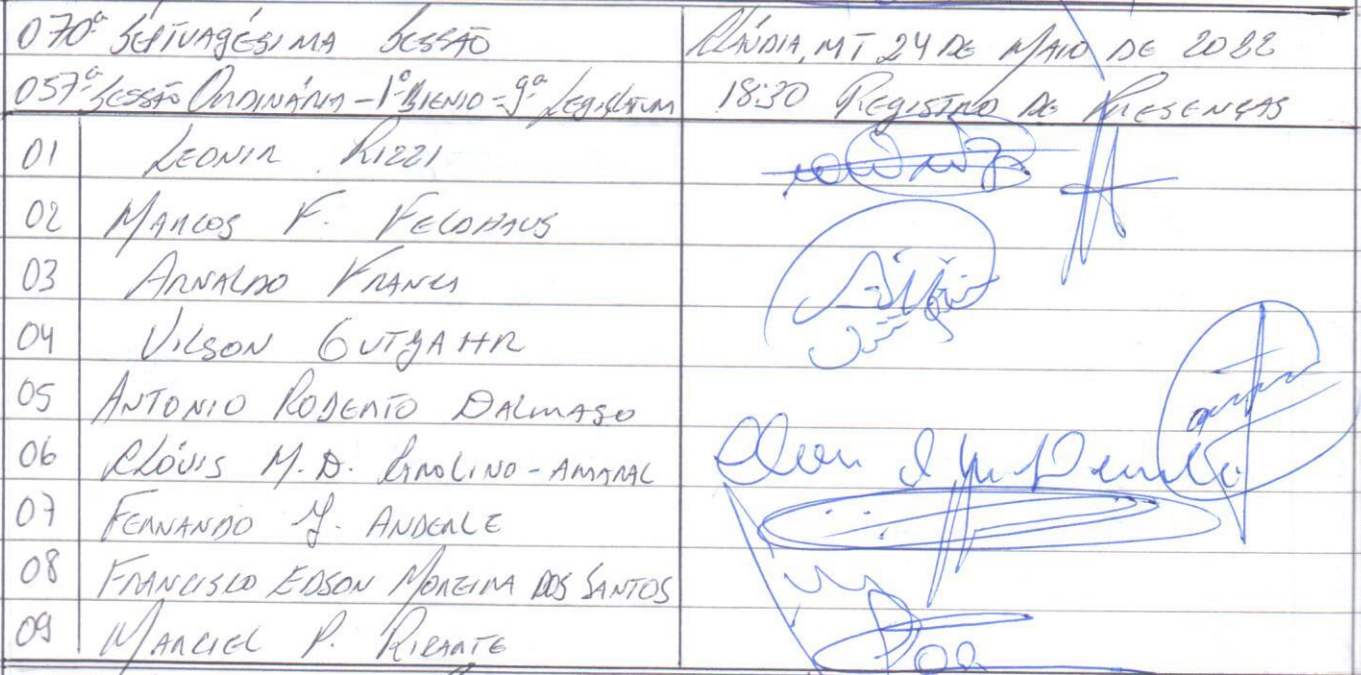 070ª SEPTUAGÉSIMA SESSÃO
CLÁUDIA, MT 24 DE MAIO DE 2022
057ª SESSÃO ORDINÁRIA - 1º BIENIO - 9ª LEGISLATURA
18:30 REGISTRO DE PRESENÇAS
01 LEONIR RIZZI
02 MARCOS F. FELDHAUS
03 ARNALDO FRANCA
04 VILSON GUTJAHR
05 ANTONIO ROBERTO DALMASO
06 CLÓVIS M. D. CAROLINO - AMARAL
07 FERNANDO J. ANDERLE
08 FRANCISCO EDSON MOREIRA DOS SANTOS
09 MARCIEL P.